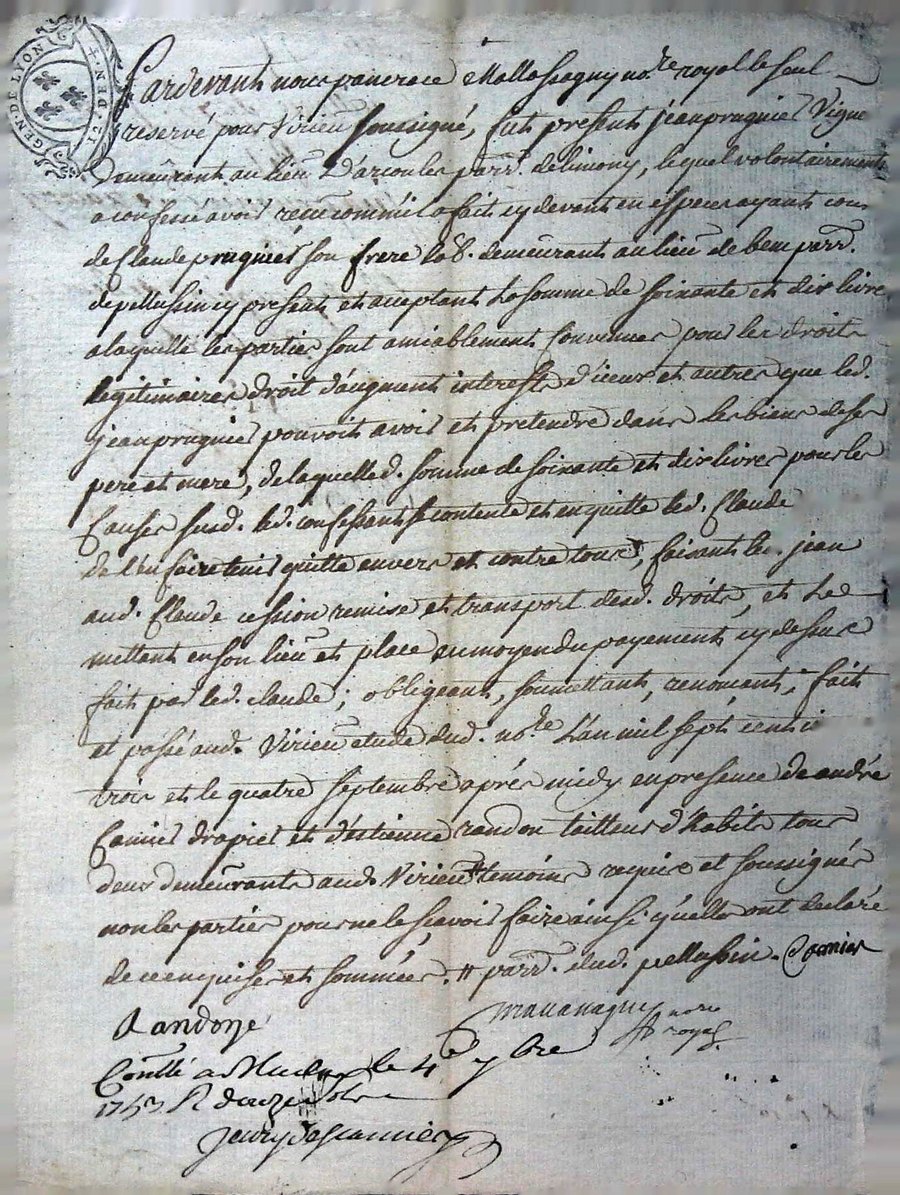 GEN. DE LYON
Pardevant nous pancrace Mallassagny no.re royal le seul
reservé pour Virieu soussigné, fut present jean prugnier Vigne
Demeurant au lieu D'arcoules parr. de limony, lequel volontairement
a confessé avoir receu comme il a fait cy devant en especes ayant cours
de Claude prugnier son frere lab. demeurant au lieu de bem parr.
de pellussin cy present et acceptant La somme de soixante et dix livres
a laquelle les parties sont amiablement Convenues pour les droits
legitimaires droit d'augment interests d'iceux et autres que led.
jean prugnier pouvoit avoir et pretendre dans les biens de ses
pere et mere, de laquelle d. somme de soixante et dix livres pour les
Causes susd. led. confessant se contente et en quitte led. Claude
de l'en faire tenir quitte envers et contre tous, faisant led. jean
aud. Claude cession remise et transport desd. droits, et Le
mettant en son lieu et place au moyen du payement cy dessus
fait par led. claude; obligeant, soumettant, renonçant; fait
et passé aud. Virieu etude dud. no.re L'an mil sept cent
trois et le quatre septembre après midy en presence de andré
Camier drapier et d'estienne randon tailleur d'habits tous
deux demeurants aud. Virieu # temoins requis et soussignés
non les parties pour ne le sçavoir faire ainsi qu'elles ont declaré
de ce enquises et sommées. # parr. dud. pellussin. Camier
Randon
nore
royal
Conllé a le 4e 7bre